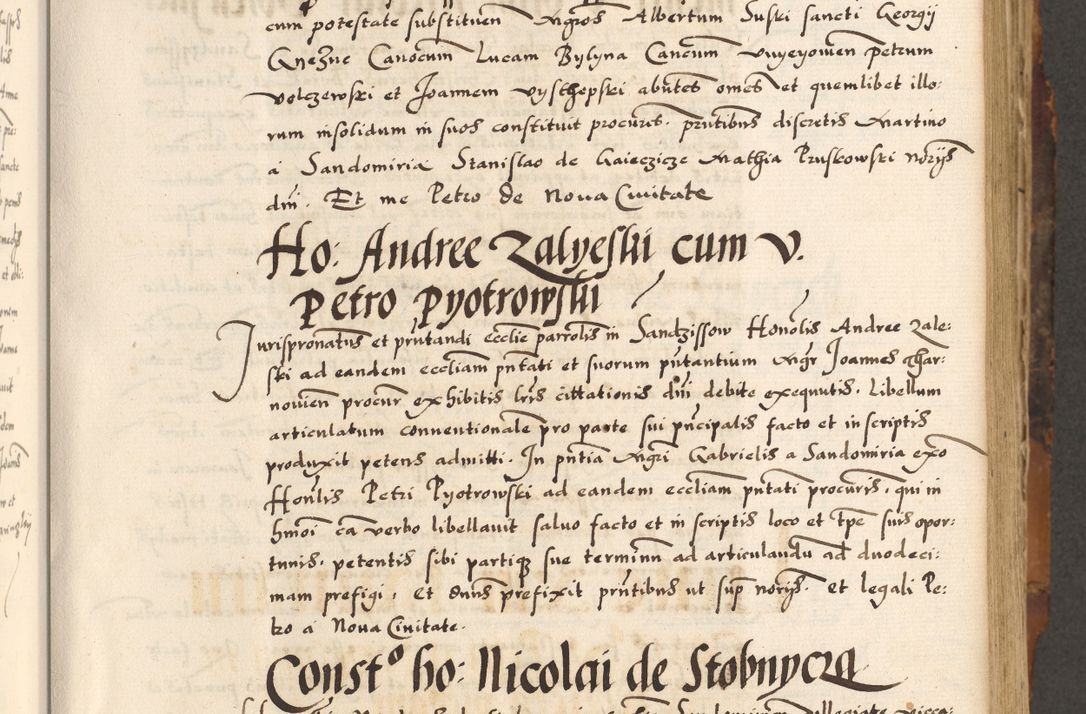 cum potestate substituen Mgros Albertum Suski sancti Georgij
Gnezne Canocum Lucam Bylyna Cancum Vnyeyowen petrum
volczewski et Joannem vysthepski abntes omes et quemlibet illo:
rum insolidum in suos constituit procurat. prntibus discretis Martino
a Sandomiria Stanislao de Gaieczicze Mathia Pruskowski norijs
dni. Et me Petro de Noua Ciuitate
Ho: Andree Zalyeski cum v.
Petro Pyotrowski
Jurispronatus et prntandi ecclie parrolis in Sandzissow Honolis Andree Zale:
ski ad eandem eccliam pntati et suorum pntantium Mgr Joannes Ghar:
nowien procur exhibitis lris cittationis dni debite exequutis. Libellum
articulatum conuentionale pro parte sui pncipalis facto et in scriptis
produxit petens admitti. In pntia Mgri Gabrielis a Sandomiria exo
Honlis Petri Pyotrowski ad eandem eccliam pntati procuris, qui in
hmoi ca verbo libellauit saluo facto et in scriptis loco et tpe suis opor:
tunis. petentis sibi partique sue terminu ad articulandu ad duodeci:
mam prefigi, Et dnus prefixit prntibus ut sup norijs. et legali Pe:
tro a Noua Ciuitate.
Const° ho: Nicolai de Stobnycza